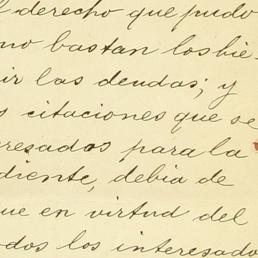 l derecho que pudo
no bastan los bie-
ir las deudas; y
s citaciones que se
resados para la
diente, debia de
ue en virtud del
dos los interesado